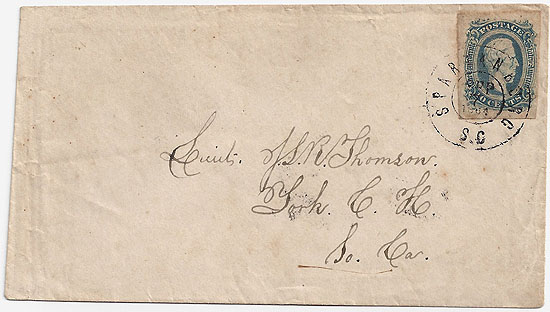 POSTAGE
TEN CENTS
SPARTANBURG
SEP
S.C
Lieut. J. S. R. Thomson.
York. C. H.
So. Ca.